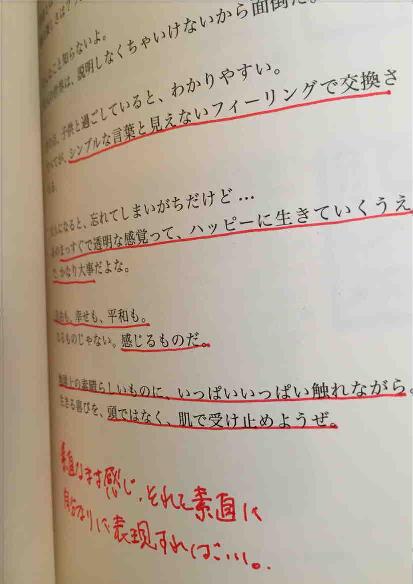 こと知らないよ。
は、説明しなくちゃいけないから面倒だ。
子供と過ごしていると、わかりやすい。
が、シンプルな言葉と見えないフィーリングで交換さ
る。
になると、忘れてしまいがちだけど…
まっすぐで透明な感覚って、ハッピーに生きていくうえ
で、かなり大事だよな。
も、幸せも、平和も。
るものじゃない。感じるものだ。
地球上の素晴らしいものに、いっぱいいっぱい触れながら。
生きる喜びを、頭ではなく、肌で受け止めようぜ。
素直なまま感じ、それを素直に
自分なりに表現すればいい。